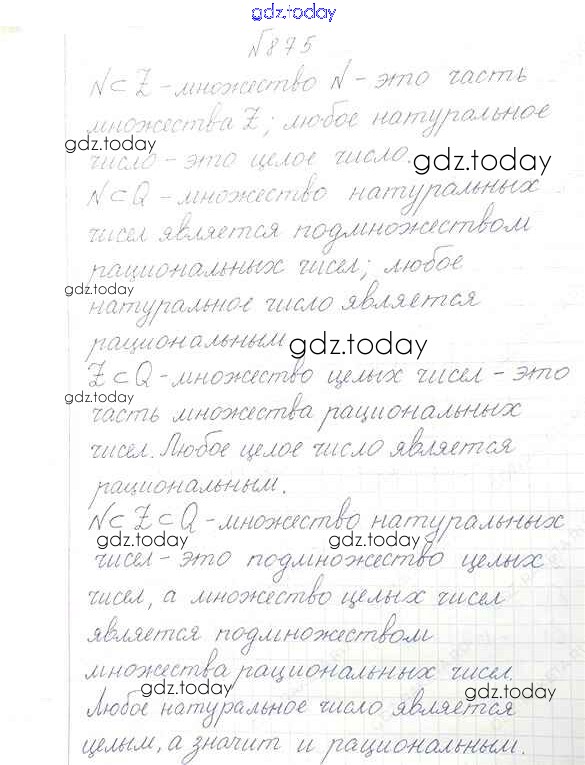 gdz.today
№875
N⊂Z - множество N - это часть
множества Z; любое натуральное
gdz.today
число - это целое число.
gdz.today
N⊂Q - множество натуральных
чисел является подмножеством
рациональных чисел; любое
gdz.today
натуральное число является
рациональным
gdz.today
Z⊂Q - множество целых чисел - это
gdz.today
часть множества рациональных
чисел. Любое целое число является
рациональным.
N⊂Z⊂Q - множество натуральных
gdz.today gdz.today
чисел - это подмножество целых
чисел, а множество целых чисел
является подмножеством
множества рациональных чисел.
gdz.today gdz.today
Любое натуральное число является
целым, а значит и рациональным.